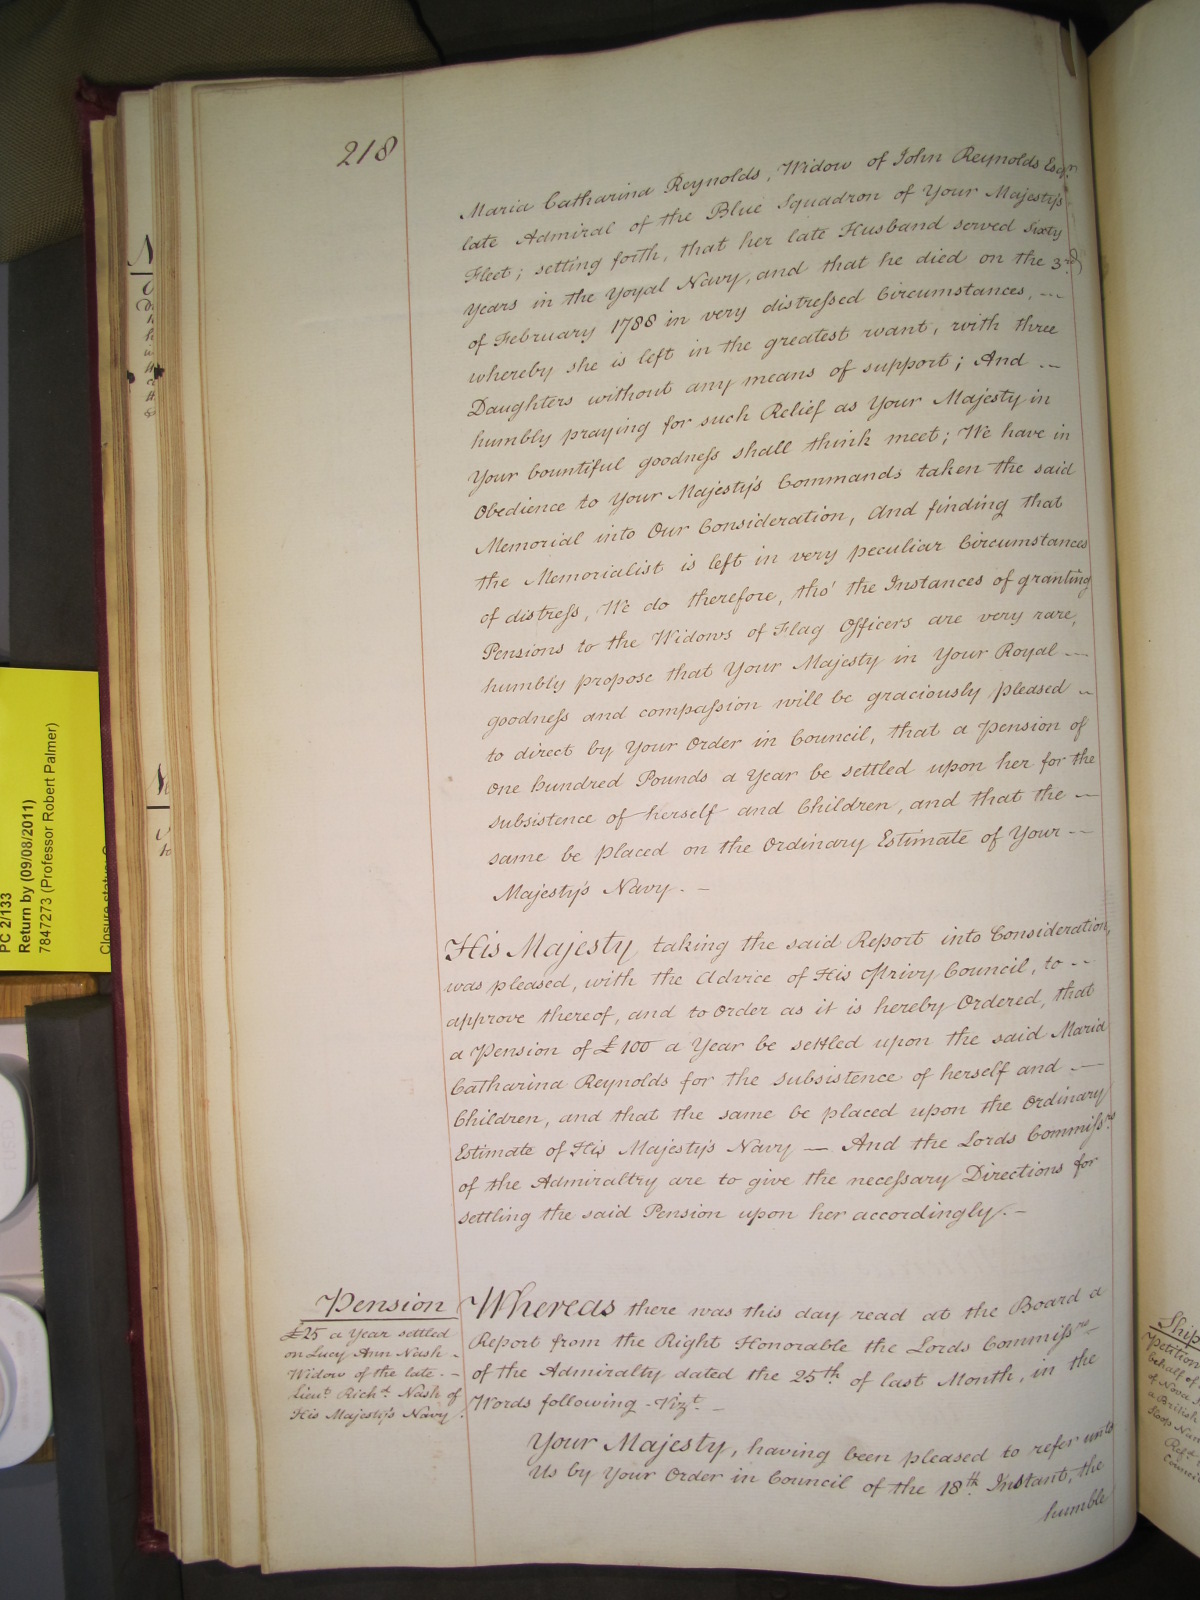 218
Maria Catharina Reynolds, Widow of John Reynolds Esqr.
late Admiral of the Blue Squadron of Your Majesty's
Fleet; setting forth, that her late Husband served Sixty
Years in the Yoyal Navy, and that he died on the 3rd.
of February 1788 in very distressed Circumstances, --
whereby she is left in the greatest want, with three
Daughters without any means of support; And --
humbly praying for such Relief as Your Majesty in
Your bountiful goodness shall think meet; We have in
Obedience to Your Majesty's Commands taken the said
Memorial into Our Consideration, And finding that
the Memorialist is left in very peculiar Circumstances
of distress, We do therefore, tho' the Instances of granting
Pensions to the Widows of Flag Officers are very rare,
humbly propose that Your Majesty in Your Royal --
goodness and compassion will be graciously pleased --
to direct by Your Order in Council, that a Pension of
One hundred Pounds a Year be settled upon her for the
subsistence of herself and Children, and that the --
same be placed on the Ordinary Estimate of Your --
Majesty's Navy. -
His Majesty taking the said Report into Consideration,
was pleased, with the Advice of His Privy Council, to --
approve thereof, and to Order as it is hereby Ordered, that
a Pension of £100 a Year be settled upon the said Maria
Catharina Reynolds for the subsistence of herself and --
Children, and that the same be placed upon the Ordinary
Estimate of His Majesty's Navy — And the Lords Commissrs.
of the Admiraltry are to give the necessary Directions for
settling the said Pension upon her accordingly. -
Pension
£25 a Year settled
on Lucy Ann Nash -
Widow of the late. -
Lieut. Richd. Nash of
His Majesty's Navy.
Whereas there was this day read at the Board a
Report from the Right Honorable the Lords Commissrs.
of the Admiralty dated the 25th. of last Month, in the
Words following - Vizt. -
Your Majesty, having been pleased to refer unto
Us by Your Order in Council of the 18th. Instant, the
humble
PC 2/133
Return by (09/08/2011)
7847273 (Professor Robert Palmer)
Closure status:
Ship
Petition
behalf of
of Nova
a British
Sloop
Refd.